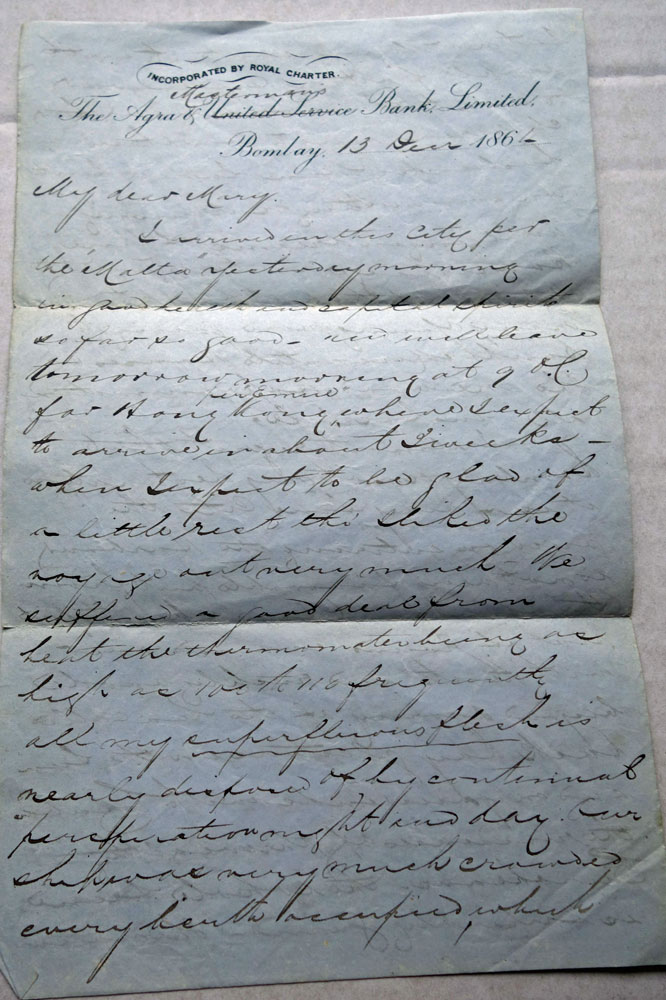 INCORPORATED BY ROYAL CHARTER.
Masterman's
The Agra & United Service Bank, Limited.
Bombay, 13 1864
My dear Mary.
I arrived in this City per
the "Malta" yesterday morning
in good health and capital spirits
so far so good - will leave
tomorrow morning at 9 O.C.
for Hong Kong where I expect
to arrive in about 3 weeks -
when I expect to be glad of
a little rest tho' I liked the
voyage out very much - We
suffered a good deal from
heat the thermometer being as
high as 100 to 110 frequently
all my superfluous flesh is
nearly disposed of by continual
perspiration night and day. Our
ship was very much crowded
every berth occupied, which